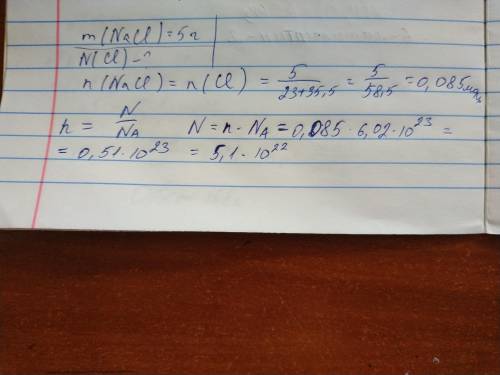 m(NaCl)=5г
N(Cl)-?
n(NaCl) = n(Cl) = 5/(23+35,5) = 5/58,5 = 0,085моль
n = N/NA N = n·NA = 0,085·6,02·10²³ =
= 0,51·10²³ = 5,1·10²²